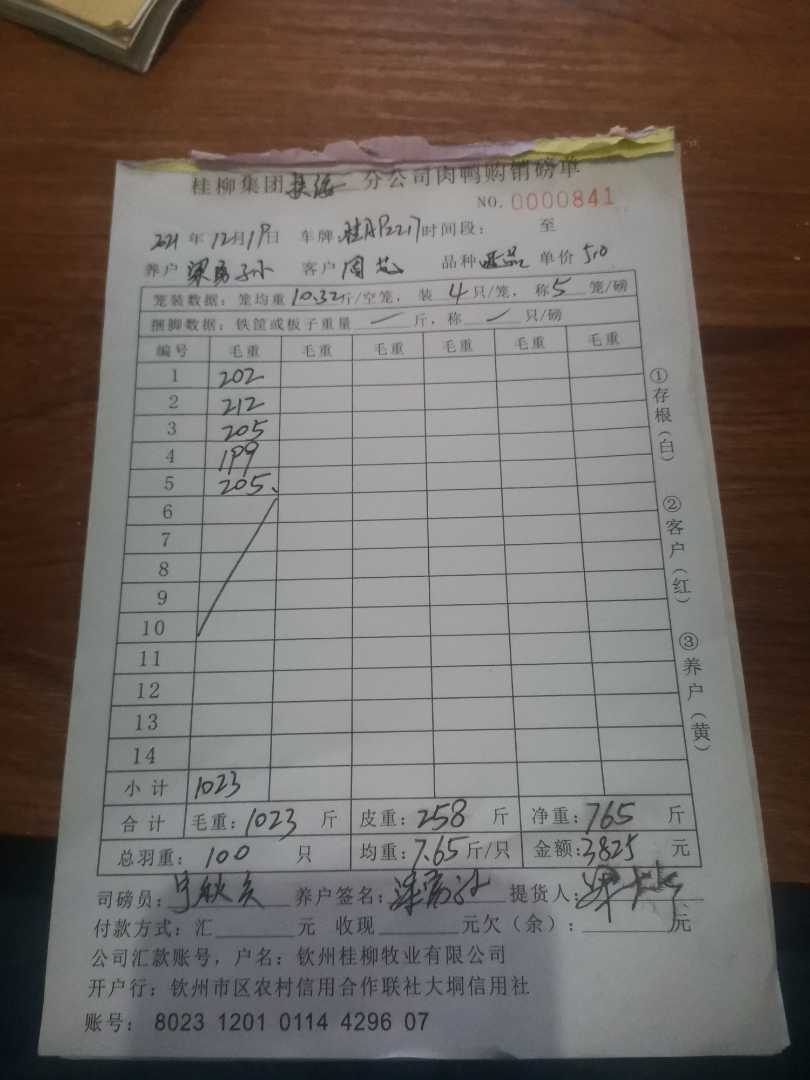 桂柳集团 分公司肉鸭购销磅单
NO. 0000841
2021年12月19日 车牌 2217 时间段: 至
养户 梁 客户 周 品种 单价 5.0
笼装数据: 笼均重 10.32 斤/空笼, 装 4 只/笼, 称 5 笼/磅
捆脚数据: 铁筐或板子重量 — 斤, 称 — 只/磅
编号 毛重 毛重 毛重 毛重 毛重 毛重
1 202
2 212
3 205
4 199
5 205
6
7
8
9
10
11
12
13
14
小计 1023
合计 毛重: 1023 斤 皮重: 258 斤 净重: 765 斤
总羽重: 100 只 均重: 7.65 斤/只 金额: 3825 元
司磅员: 养户签名: 提货人:
付款方式: 汇 元 收现 元欠(余): 元
公司汇款账号, 户名: 钦州桂柳牧业有限公司
开户行: 钦州市区农村信用合作联社大垌信用社
账号: 8023 1201 0114 4296 07
①存根(白)
②客户(红)
③养户(黄)